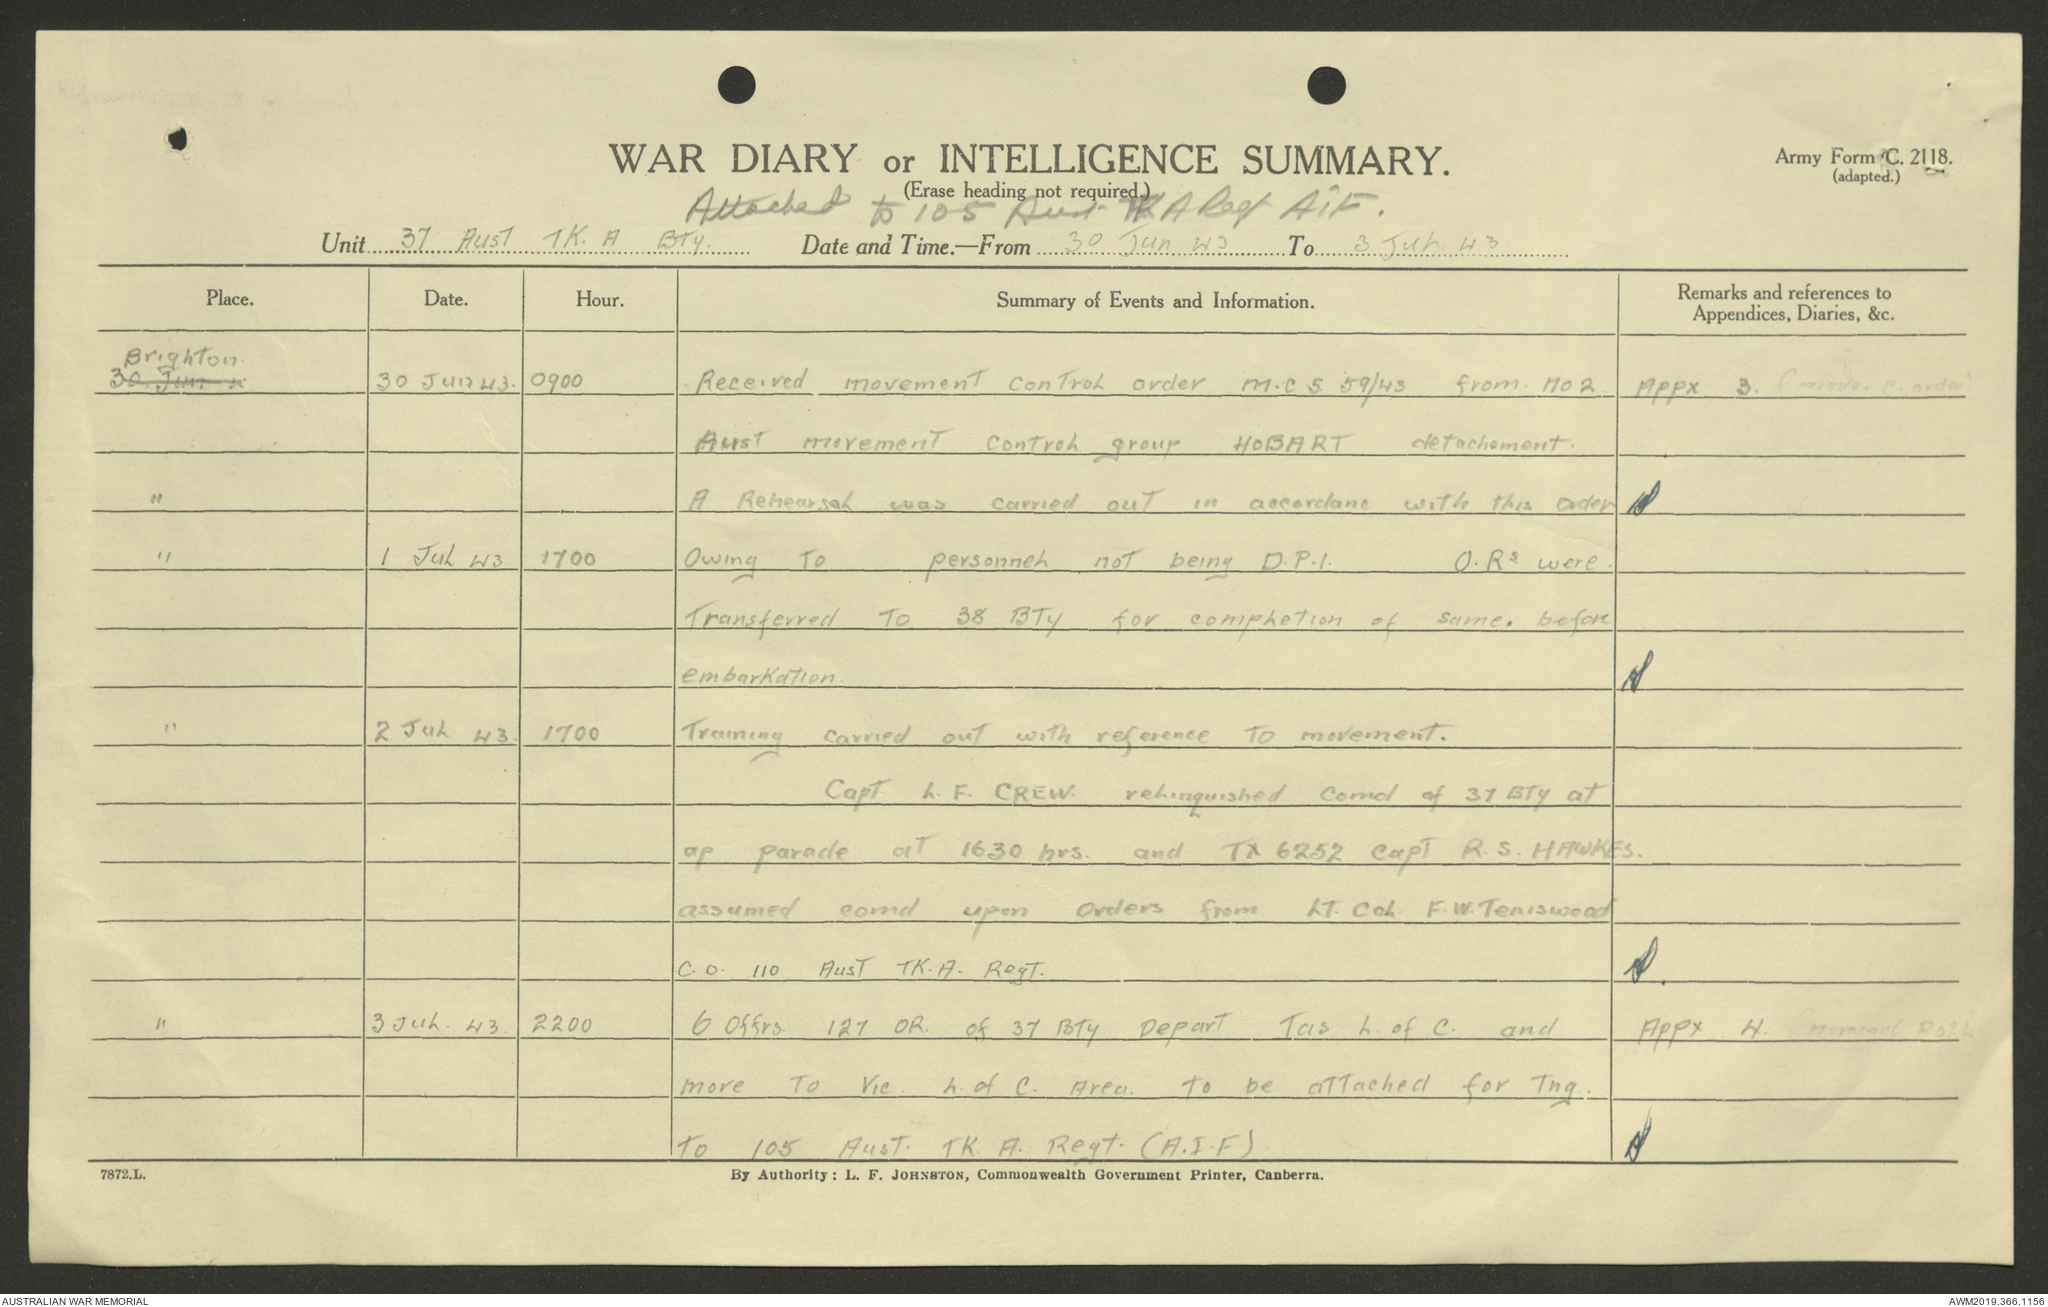 WAR DIARY or INTELLIGENCE SUMMARY.
(Erase heading not required.)
Army Form C. 2118.
(adapted.)
Attached to 105 Aust TK A Regt AIF.
Unit 37 Aust TK. A Bty. Date and Time.—From 30 Jun 43 To 3 Jul 43
Place. Date. Hour. Summary of Events and Information. Remarks and references to Appendices, Diaries, &c.
Brighton.
30 Jun 30 Jun 43. 0900 Received movement control order M.C S 59/43 from No 2 Appx 3. (move. c. order)
Aust movement control group HOBART detachement.
" A Rehearsal was carried out in accordanc with this order
" 1 Jul 43 1700 Owing to personnel not being D.P.1. O.Rs were.
Transferred To 38 BTy for completion of same. before
embarkation.
" 2 Jul 43. 1700 Training carried out with reference To movement.
Capt L. F. CREW. relinquished comd of 37 BTy at
ap parade at 1630 hrs. and TX 6252 Capt R. S. HAWKES.
assumed comd upon orders from LT. Col. F.W. Teniswood
C.O. 110 Aust TK.A. Regt.
" 3 Jul. 43. 2200 6 Offrs. 127 OR. of 37 BTy Depart Tas L. of C. and Appx 4. (nominal Roll
move To Vic. L. of C. Area. To be attached for Tng.
To 105 Aust. TK. A. Regt. (A.I.F)
7872.L.
By Authority: L. F. JOHNSTON, Commonwealth Government Printer, Canberra.
AUSTRALIAN WAR MEMORIAL
AWM2019.366.1156